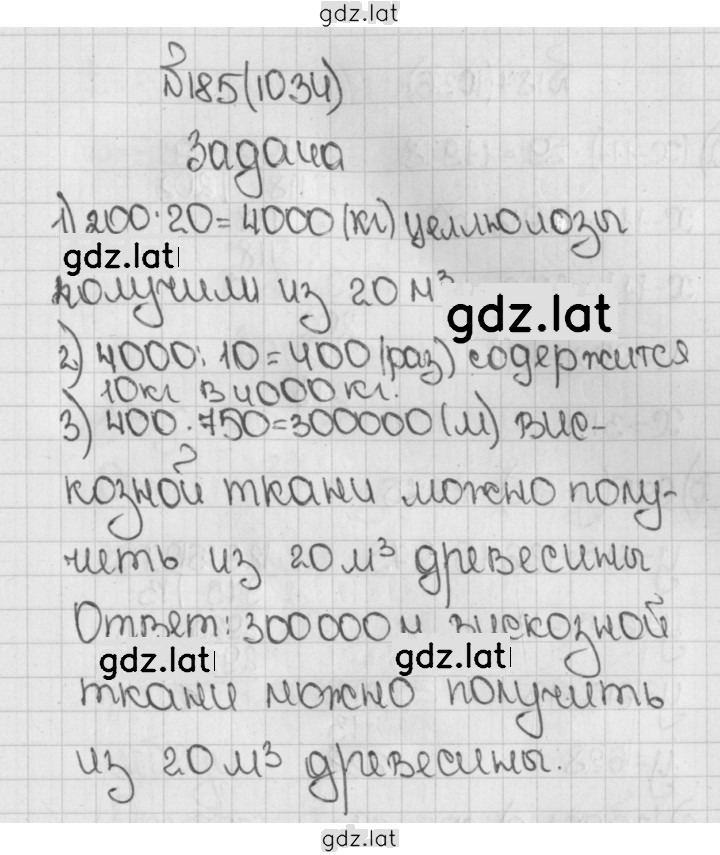 gdz.lat
№185(1034)
Задача
1) 200·20=4000(кг) целлюлозы
gdz.lat
получили из 20 м³
gdz.lat
2) 4000:10=400(раз) содержится
10кг в 4000кг.
3) 400·750=300000(м) вис-
козной ткани можно полу-
чить из 20м³ древесины
Ответ: 300000м вискозной
gdz.lat gdz.lat
ткани можно получить
из 20м³ древесины.
gdz.lat